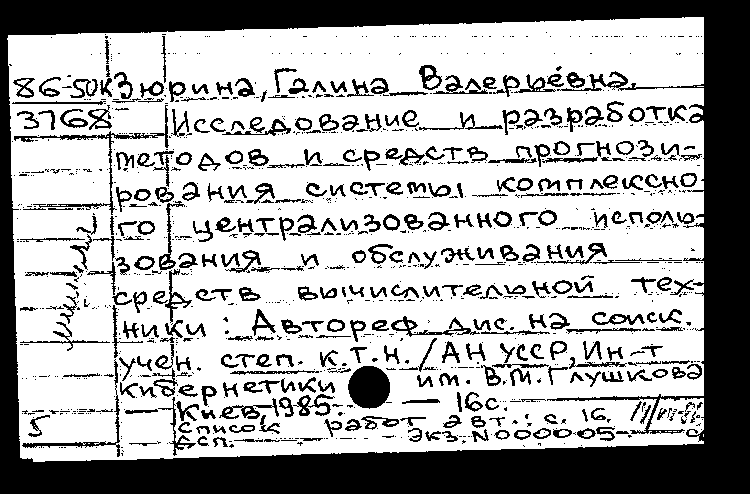 86-50К Зюрина, Галина Валерьевна.
3768 Исследование и разработка
методов и средств прогнози-
рования системы комплексно-
го централизованного исполь-
зования и обслуживания
средств вычислительной тех-
ники: Автореф. дис. на соиск.
учен. степ. к.т.н. /АН УССР, Ин-т
кибернетики им. В.М.Глушкова
— Киев, 1985. — 16с.
Список работ авт.: с. 16.
5 ДСП. Экз. N000005